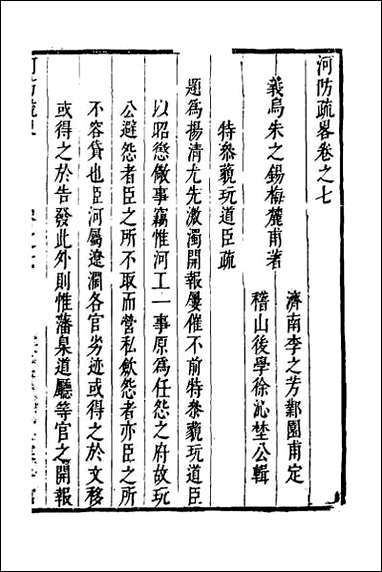 河防疏畧卷之七
濟南李之芳鄴園甫定
義烏朱之錫梅麓甫著
稽山後學徐沁埜公輯
特叅藐玩道臣疏
題爲揚清尤先激濁開報屢催不前特叅藐玩道臣
以昭懲儆事竊惟河工一事原爲任怨之府故玩
公避怨者臣之所不取而營私斂怨者亦臣之所
不容貸也臣河屬遼濶各官劣迹或得之於文移
或得之於告發此外則惟藩臬道廳等官之開報